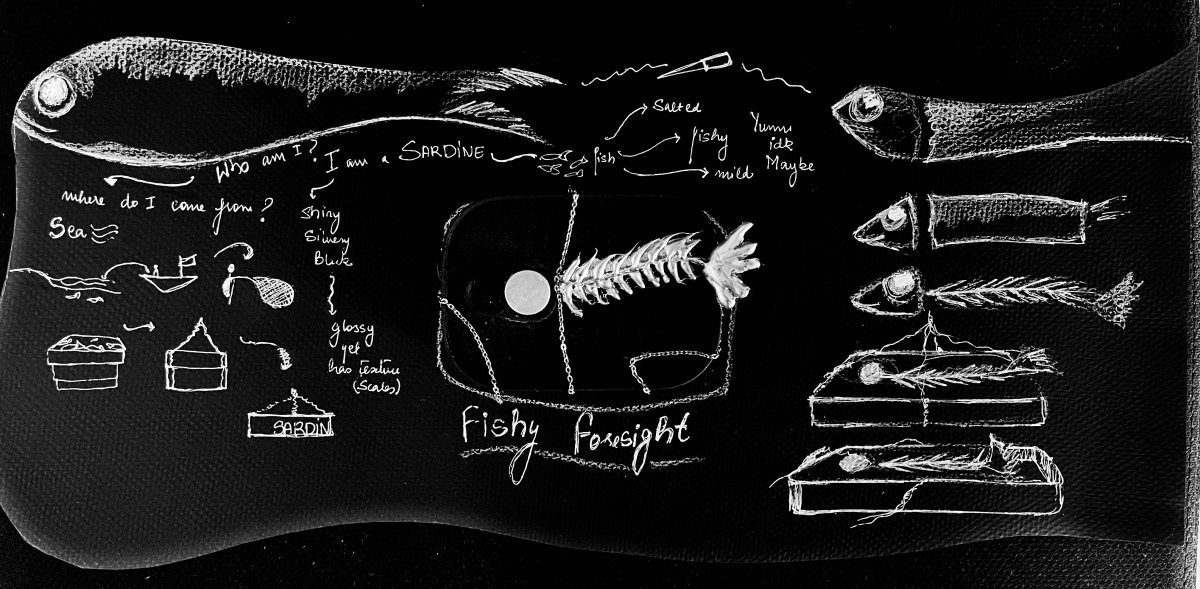 Who am I?
I am a SARDINE
fish
Salted
fishy
mild
Yumm
idk
Maybe
where do I come from?
Sea
Shiny
Slimery
Black
glossy
yet
has texture
(Scales)
SARDIN
Fishy foresight